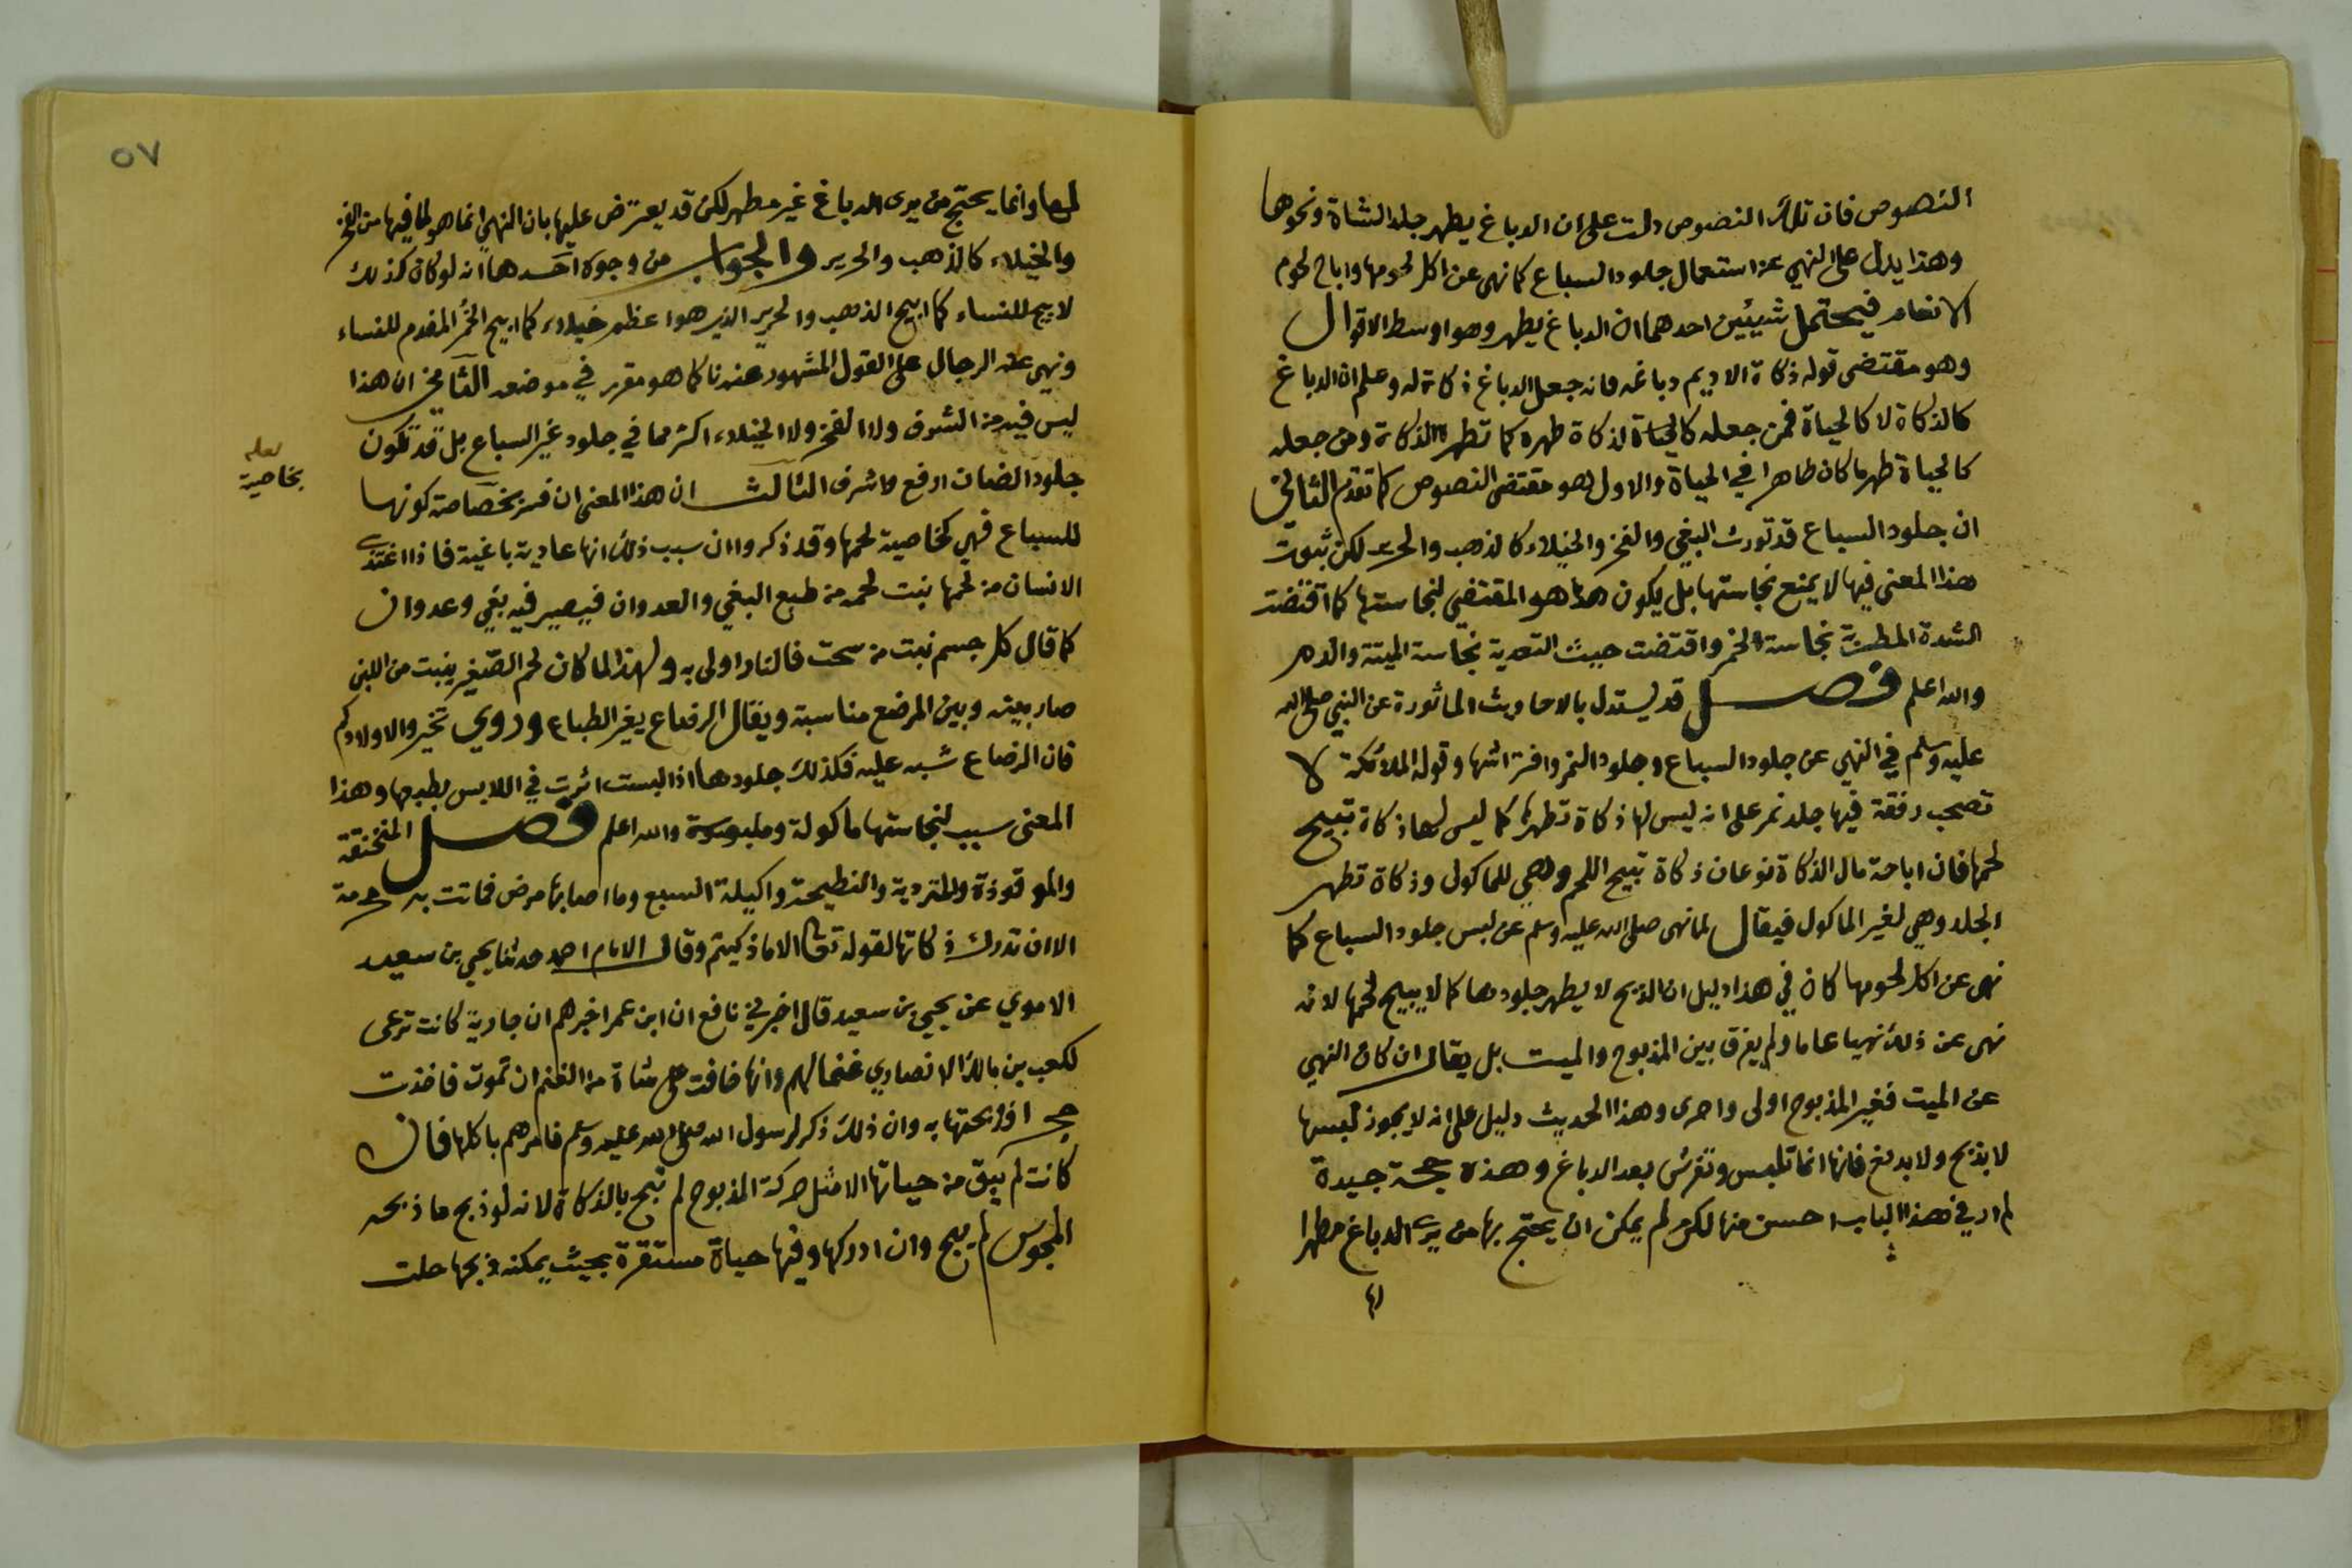 النصوص فان تلك النصوص دلت على ان الدباغ يطهر جلد الشاة ونحوها
وهذا يدل على النهي عن استعمال جلود السباع كما نهى عن اكل لحومها واباح لحوم
الانعام فيحتمل شيئين احدهما ان الدباغ يطهر وهو اوسط الاقوال
وهو مقتضى قوله ذكاة الاديم دباغه فانه جعل الدباغ ذكاة له وعلم ان الدباغ
كالذكاة لا كالحياة فمن جعله كالحياة لذكاة طهره كما تطهره الذكاة ومن جعله
كالحياة طهر ما كان طاهرا في الحياة والاول هو مقتضى النصوص كما تقدم الثاني
ان جلود السباع قد تورث البغي والفخر والخيلاء كالذهب والحرير لكن ثبوت
هذا المعنى فيها لا يمنع نجاستها بل يكون هذا هو المقتضي لنجاستها كما اقتضت
الشدة المطربة نجاسة الخمر واقتضت خبيث التغدية نجاسة الميتة والدم
والله اعلم فصل قد يستدل بالاحاديث الماثورة عن النبي صلى الله
عليه وسلم في النهي عن جلود السباع وجلود النمر وافتراشها وقوله الملائكة لا
تصحب رفقة فيها جلد نمر على انه ليس لها ذكاة تطهرها كما ليس لها ذكاة تبيح
لحمها فان اباحة مال الذكاة نوعان ذكاة تبيح اللحم وهي للماكول وذكاة تطهر
الجلد وهي لغير الماكول فيقال لما نهى صلى الله عليه وسلم عن لبس جلود السباع كما
نهى عن اكل لحومها كان في هذا دليل ان الذبح لا يطهر جلودها كما لا يبيح لحمها لانه
نهى عن ذلك نهيا عاما ولم يفرق بين المذبوح والميت بل يقال ان كان النهي
عن الميت فغير المذبوح اولى واحرى وهذا الحديث دليل على انه لا يجوز لبسها
لا بذبح ولا بدبغ فانها انما تلبس وتفرش بعد الدباغ وهذه حجة جيدة
لم ار في هذا الباب احسن منها لكن لم يمكن ان يحتج بها من يرى الدباغ مطهرا
لها
٥٧
لها وانما يحتج من يرى الدباغ غير مطهر لكن قد يعترض عليها بان النهي انما هو لما فيها من الفخر
والخيلاء كالذهب والحرير والجواب من وجوه احدها انه لو كان كذلك
لابيح للنساء كما ابيح الذهب والحرير الذي هو اعظم خيلاء كما ابيح الخمر المفدم للنساء
ونهى عنه الرجال على القول المشهور عندنا كما هو مقرر في موضعه الثاني ان هذا
ليس فيه من الشرف ولا الفخر ولا الخيلاء اكثر مما في جلود غير السباع بل قد تكون
جلود الضان ارفع واشرف الثالث ان هذا المعنى ان فسر بخصاصة كونها
لعله
بخاصية
للسباع فهي كخاصية لحمها وقد ذكروا ان سبب ذلك انها عادية باغية فاذا اغتذى
الانسان من لحمها نبت لحمه من طبع البغي والعدوان فيصير فيه بغي وعدوان
كما قال كل جسم نبت من سحت فالنار اولى به ولهذا لما كان لحم الصغير ينبت من اللبن
صار بينه وبين المرضع مناسبة ويقال الرضاع يغير الطباع وروي تخيروا لاولادكم
فان الرضاع شبه عليه فكذلك جلودها اذا لبست اثرت في اللابس بطبعها وهذا
المعنى سبب لنجاستها ماكولة وملبوسة والله اعلم فصل المنخنقة
والموقوذة والمتردية والنطيحة واكيلة السبع وما اصابها مرض فماتت به حرمة
الا ان تدرك ذكاتها لقوله تعالى الا ما ذكيتم وقال الامام احمد حدثنا يحيى بن سعيد
الاموي عن يحيى بن سعيد قال اخبرني نافع ان ابن عمر اخبرهم ان جارية كانت ترعى
لكعب بن مالك الانصاري غنما لهم وانها خافت على شاة من الغنم ان تموت فاخذت
حجرا فذبحتها به وان ذلك ذكر لرسول الله صلى الله عليه وسلم فامرهم باكلها فان
كانت لم يبق من حياتها الا مثل حركة المذبوح لم تبح بالذكاة لانه لو ذبح ما ذبحه
المجوس لم يبح وان ادركها وفيها حياة مستقرة بحيث يمكنه ذبحها حلت